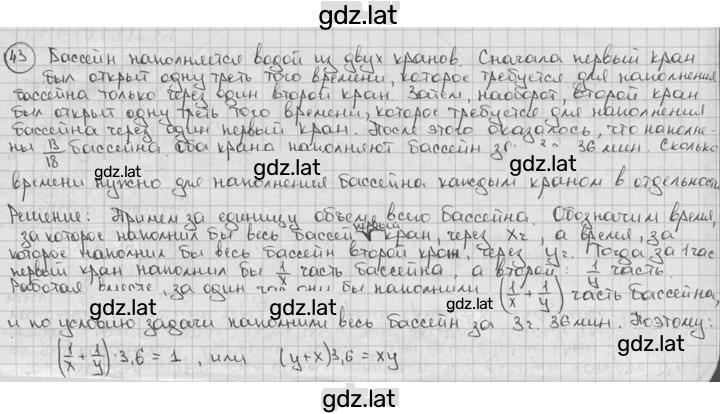 gdz.lat
43 Бассейн наполняется водой из двух кранов. Сначала первый кран
был открыт одну треть того времени, которое требуется для наполнения
бассейна только через один второй кран. Затем, наоборот, второй кран
был открыт одну треть того времени, которое требуется для наполнения
бассейна через один первый кран. После этого оказалось, что наполне-
ны 13/18 бассейна. Оба крана наполняют бассейн за 3г. 36 мин. Сколько
gdz.lat gdz.lat gdz.lat
времени нужно для наполнения бассейна каждым краном в отдельности
Решение: Примем за единицу объем всего бассейна. Обозначим время,
за которое наполнил бы весь бассейн первый кран, через xг, а время, за
которое наполнил бы весь бассейн второй кран, через yг. Тогда за 1 час
gdz.lat gdz.lat gdz.lat
первый кран наполнил бы 1/x часть бассейна, а второй: 1/y часть.
Работая вместе, за один час они бы наполнили (1/x + 1/y) часть бассейна,
gdz.lat gdz.lat
и по условию задачи наполнили весь бассейн за 3г. 36 мин. Поэтому:
(1/x + 1/y)·3,6 = 1, или (y+x)3,6 = xy
gdz.lat gdz.lat gdz.lat
gdz.lat